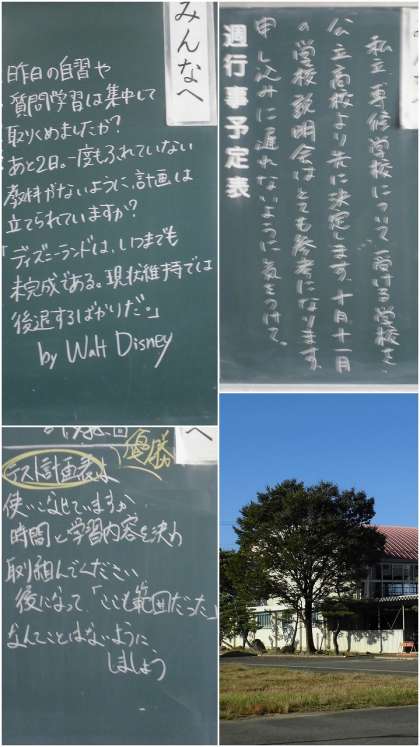 みんなへ
昨日の自習や
質問学習は集中して
取りくめましたか?
あと2日。一度もふれていない
教科がないように、計画は
立てられていますか?
「ディズニーランドは、いつまでも
未完成である。現状維持では
後退するばかりだ。」
by Walt Disney
私立、専修学校について 受ける学校を、
公立高校より先に決定します。十月十一月
の学校説明会はとても参考になります。
申し込みに遅れないように気をつけて。
週行事予定表
優勝
へ
テスト計画表は
使いこなせていますか
時間と学習内容を決め
取り組んでください
後になって、「ここも範囲だった」
なんてことはないように
しましょう